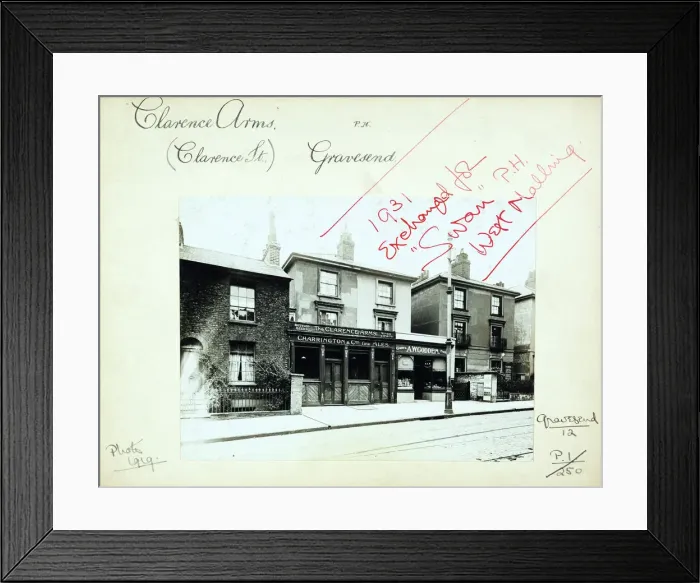 Clarence Arms, P.H.
(Clarence St.) Gravesend.
1931
Exchanged for
"Swan" P.H.
West Malling.
THE CLARENCE ARMS
CHARRINGTON & Cos ALES
A.W. GOODE
Photo
1919.
Gravesend
12
P.1
250